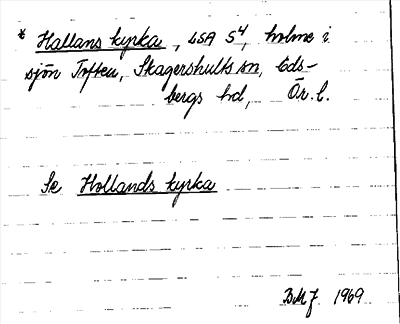 * Hallans kyrka, LSA S4, holme i
sjön Toften, Skagershults sn, Eds-
bergs hd, Ör. l.
Se Hollands kyrka
BMJ 1969